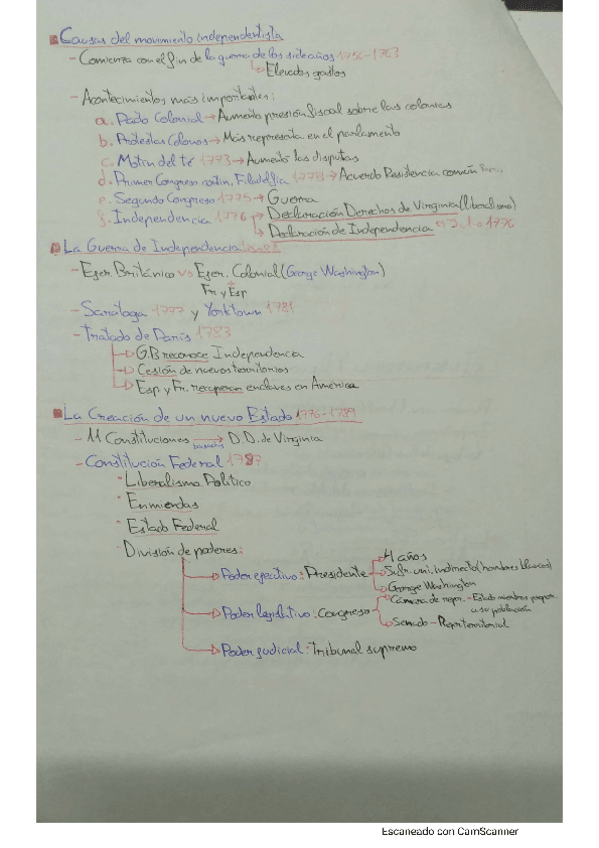 Causas del movimiento independentista
- Comienza con el fin de la guerra de los siete años 1756-1763
Elevados gastos
- Acontecimientos más importantes:
a. Pacto Colonial → Aumento presión fiscal sobre las colonias
b. Protestas Colonos → Más representa en el parlamento
c. Motín del té 1773 → Aumento las disputas
d. Primer Congreso contin. Filadelfia → Acuerdo Resistencia común
e. Segundo Congreso 1775 → Guerra
f. Independencia 1776 → Declaración Derechos de Virginia (liberalismo)
Declaración de Independencia 1776
La Guerra de Independencia
- Ejer. Británico vs Ejer. Colonial (George Washington)
+
Fr y Esp
- Saratoga 1777 y Yorktown 1781
- Tratado de París 1783
GB reconoce Independencia
Cesión de nuevos territorios
Esp y Fr. recuperan enclaves en América
La Creación de un nuevo Estado 1776-1789
- 11 Constituciones → D.D. de Virginia
- Constitución Federal 1787
· Liberalismo Político
· Enmiendas
· Estado Federal
· División de poderes:
4 años
Poder ejecutivo: Presidente → Sufr. uni. indirecto (hombres blancos)
George Washington
Cámara de repr. - Estado miembros propor. a su población
Poder legislativo: Congreso
Senado - Repr. territorial
Poder judicial: Tribunal supremo
Escaneado con CamScanner